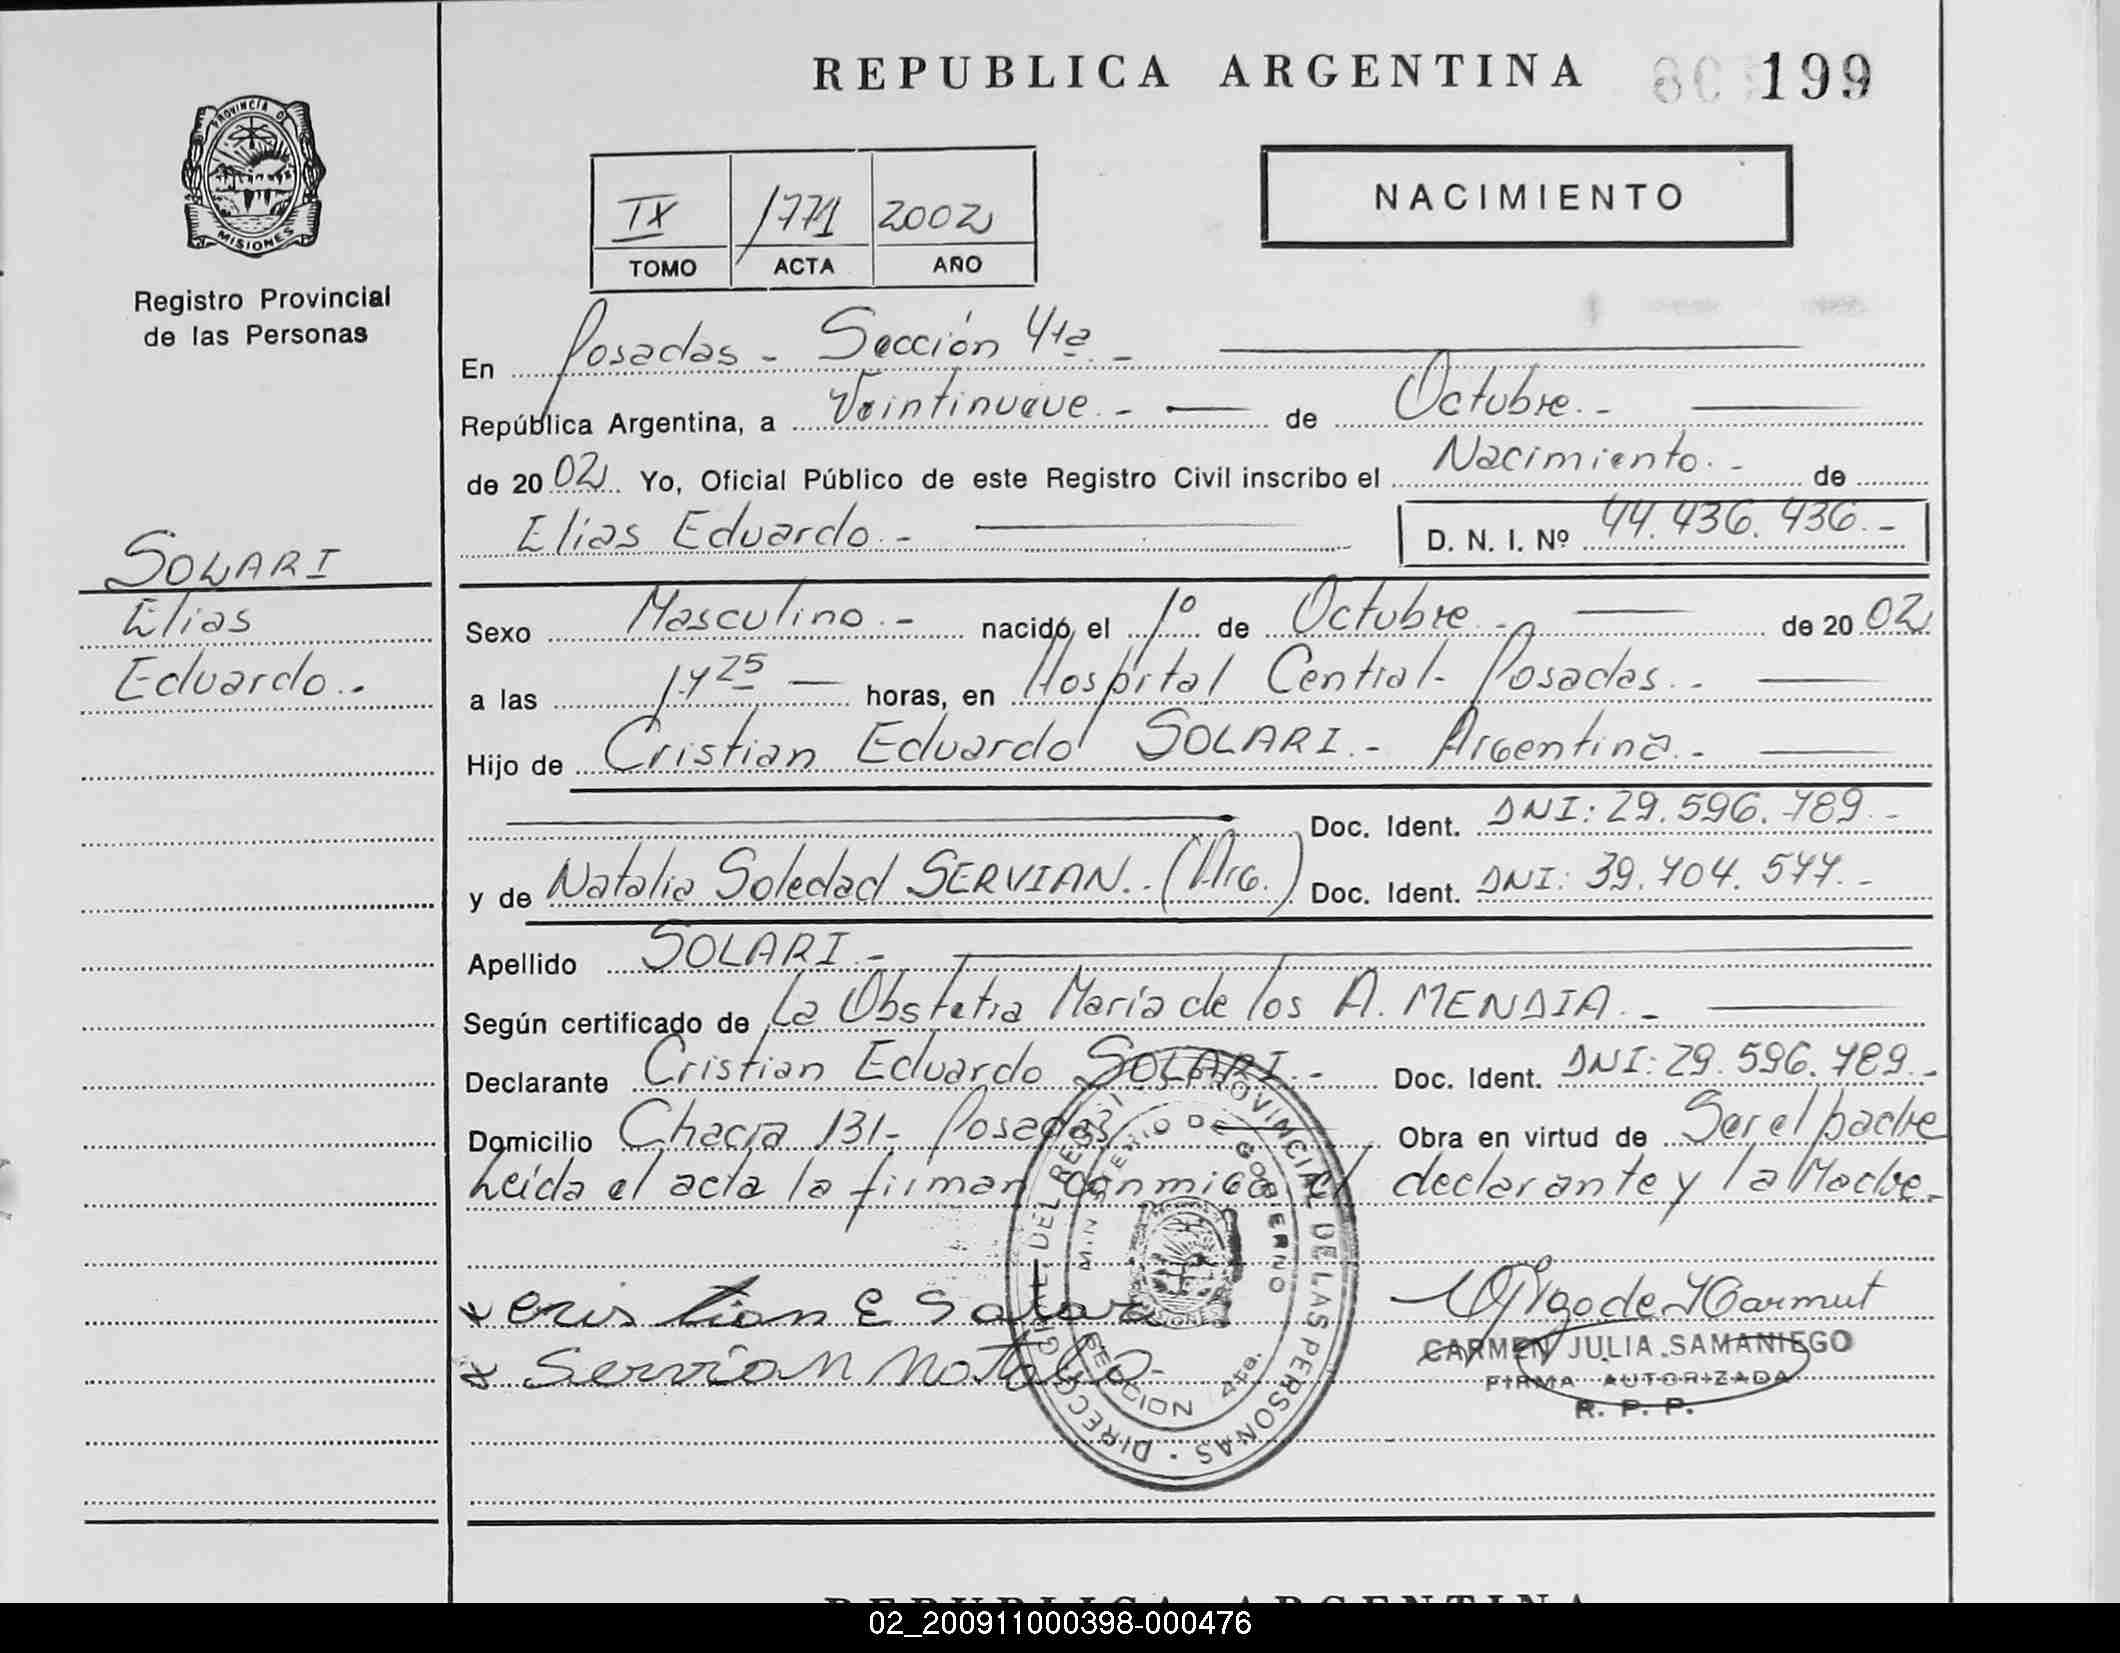 REPUBLICA ARGENTINA 199
PROVINCIA DE MISIONES
Registro Provincial
de las Personas
NACIMIENTO
IX 1771 2002
TOMO ACTA AÑO
En Posadas - Sección 4ta -
República Argentina, a Veintinueve.- de Octubre.-
de 2002 Yo, Oficial Público de este Registro Civil inscribo el Nacimiento.- de
Elias Eduardo.- D. N. I. Nº 44.436.436.-
SOLARI
Elias
Eduardo.-
Sexo Masculino.- nacido el 1º de Octubre.- de 2002
a las 14 25 horas, en Hospital Central- Posadas.-
Hijo de Cristian Eduardo SOLARI.- Argentina.-
Doc. Ident. DNI: 29.596.789.-
y de Natalia Soledad SERVIAN.. (Arg.) Doc. Ident. DNI: 39.704.577.-
Apellido SOLARI.-
Según certificado de La Obstetra María de los A. MENDIA.-
Declarante Cristian Eduardo SOLARI.- Doc. Ident. DNI: 29.596.789.-
Domicilio Chacra 131- Posadas Obra en virtud de Ser el padre
Leída el acta la firman conmigo el declarante y la Madre.-
x Cristian E Solari
x Servian Natalia
DIRECC. GRAL. DEL REGISTRO PROVINCIAL DE LAS PERSONAS
MINISTERIO DE GOBIERNO
SECCION 4ta.
CARMEN JULIA SAMANIEGO
FIRMA AUTORIZADA
R. P. P.
REPUBLICA ARGENTINA
02_200911000398-000476